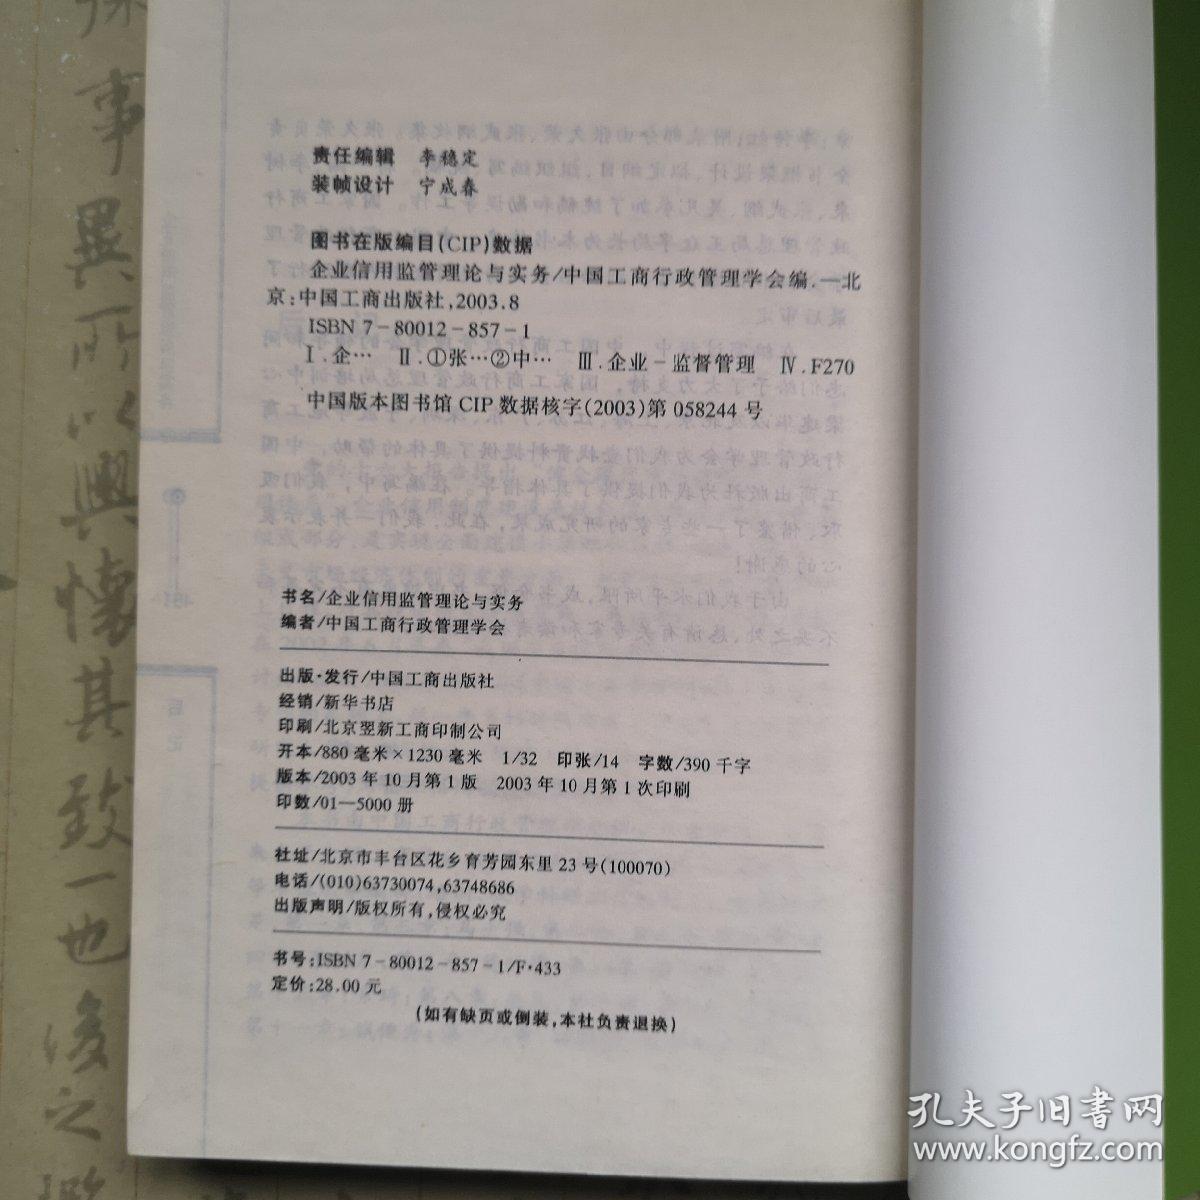 事
異
所
以
興
懷
其
致
一
也
後
之
责任编辑 李稳定
装帧设计 宁成春
图书在版编目(CIP)数据
企业信用监管理论与实务/中国工商行政管理学会编.—北
京:中国工商出版社,2003.8
ISBN 7-80012-857-1
Ⅰ.企… Ⅱ.①张…②中… Ⅲ.企业-监督管理 Ⅳ.F270
中国版本图书馆CIP数据核字(2003)第058244号
书名/企业信用监管理论与实务
编者/中国工商行政管理学会
出版·发行/中国工商出版社
经销/新华书店
印刷/北京翌新工商印制公司
开本/880毫米×1230毫米 1/32 印张/14 字数/390千字
版本/2003年10月第1版 2003年10月第1次印刷
印数/01—5000册
社址/北京市丰台区花乡育芳园东里23号(100070)
电话/(010)63730074,63748686
出版声明/版权所有,侵权必究
书号:ISBN 7-80012-857-1/F·433
定价:28.00元
(如有缺页或倒装,本社负责退换)
孔夫子旧书网
www.kongfz.com